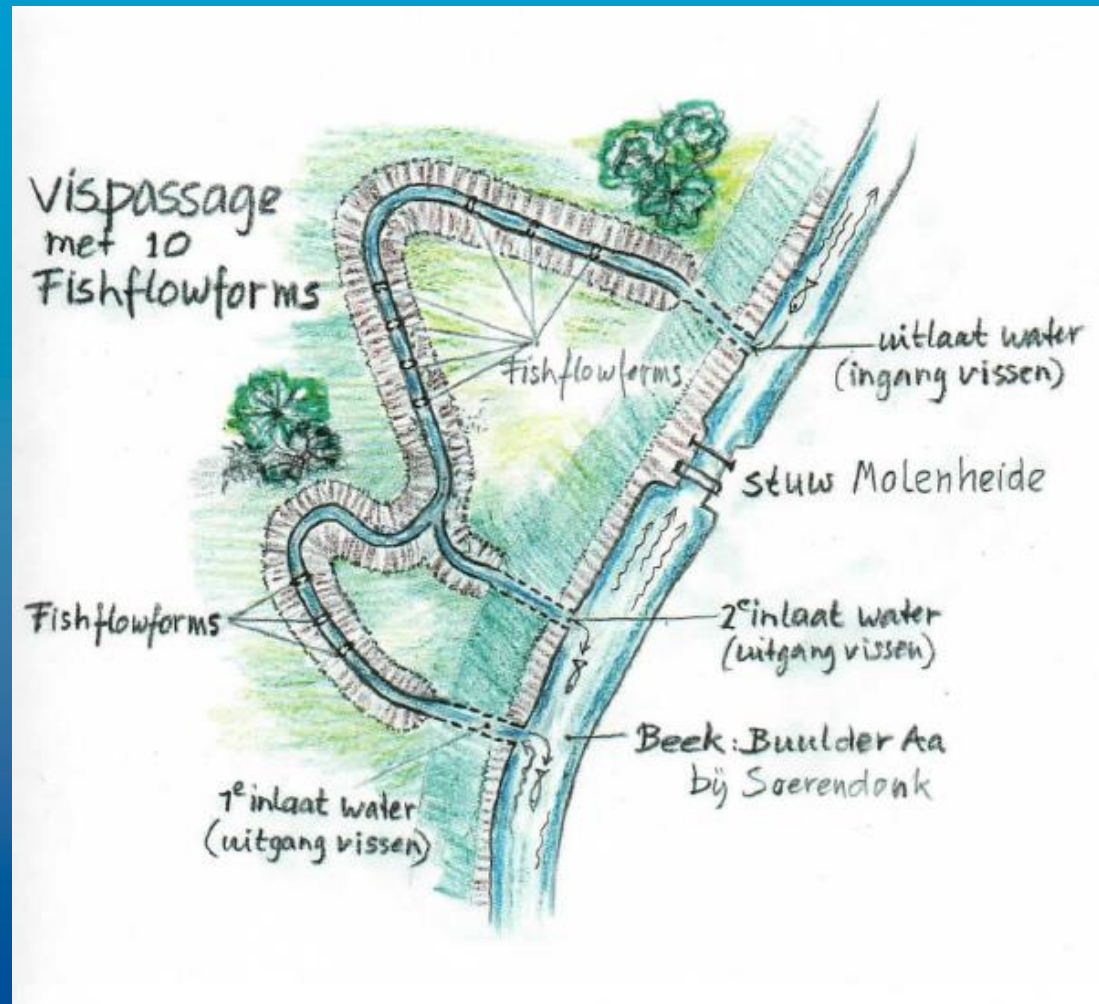 vispassage
met 10
Fishflowforms
Fishflowforms
uitlaat water
(ingang vissen)
stuw Molenheide
Fishflowforms
2e inlaat water
(uitgang vissen)
Beek: Buulder Aa
bij Soerendonk
1e inlaat water
(uitgang vissen)